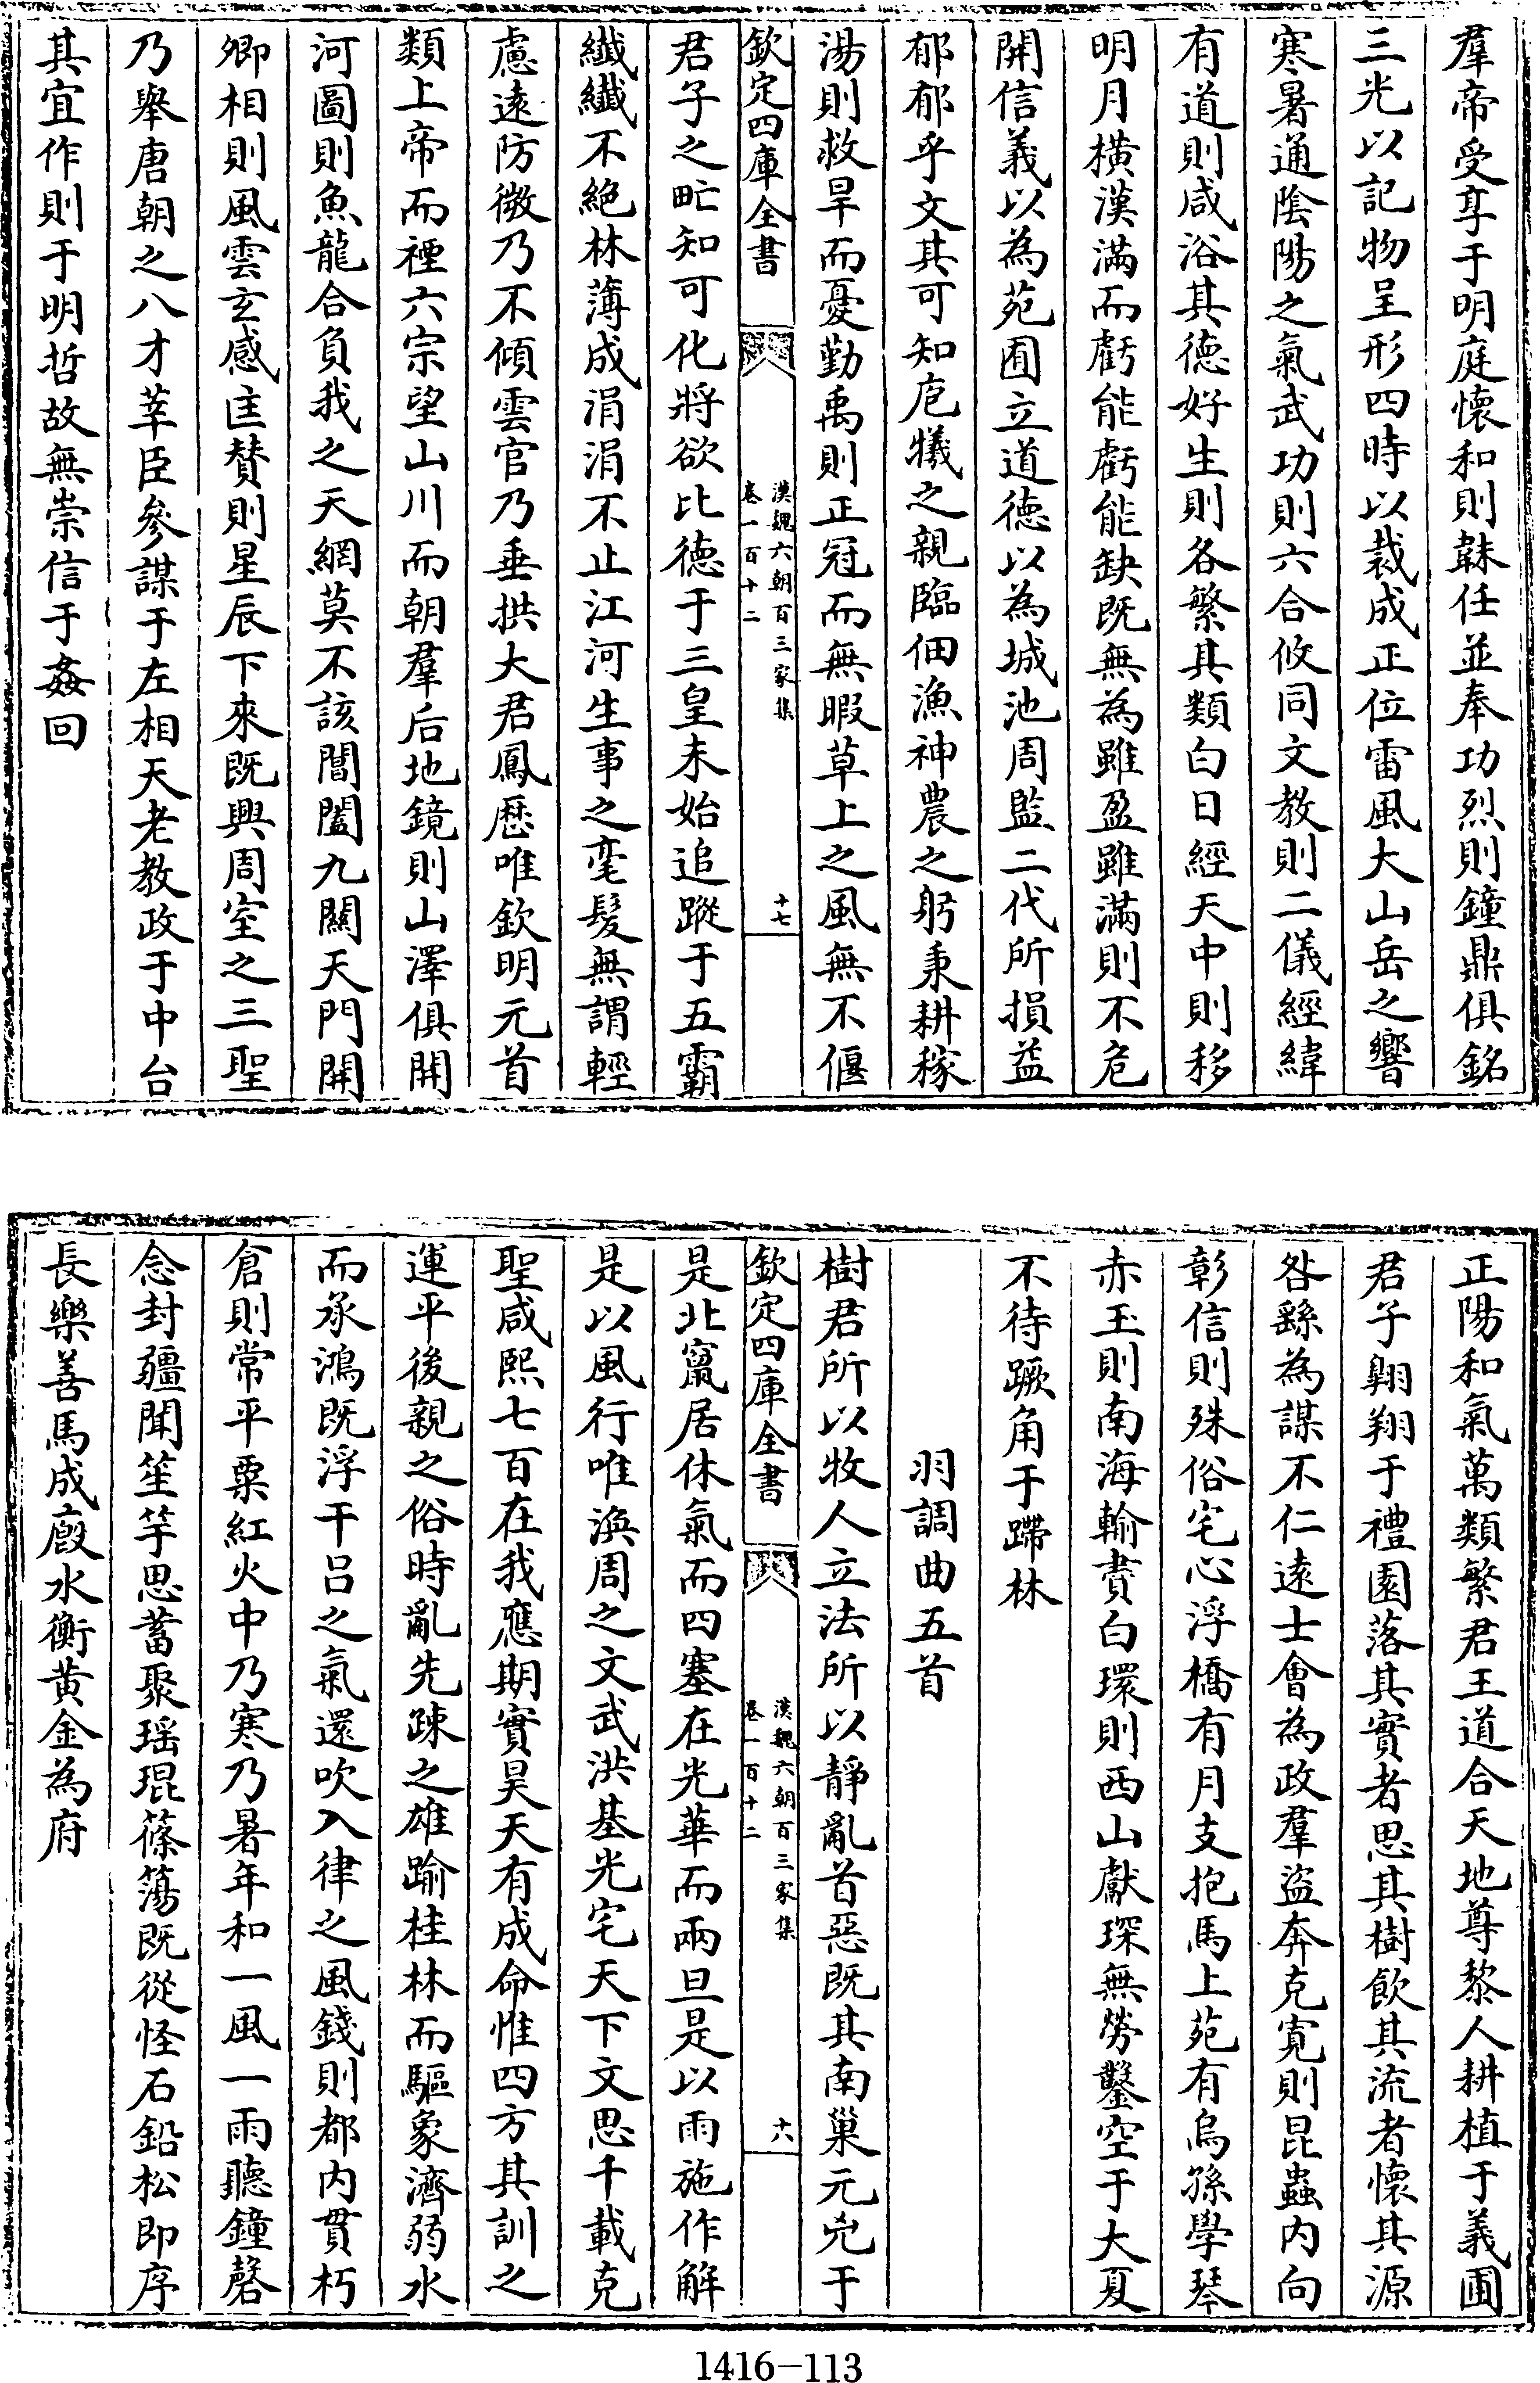 羣帝受享于明庭懷和則韎任並奉功烈則鐘鼎俱銘
三光以記物呈形四時以裁成正位雷風大山岳之響
寒暑通陰陽之氣武功則六合攸同文教則二儀經緯
有道則咸浴其德好生則各繁其類白日經天中則移
明月橫漢滿而虧能虧能缺既無為雖盈雖滿則不危
開信義以為苑囿立道德以為城池周監二代所損益
郁郁乎文其可知庖犧之親臨佃漁神農之躬秉耕稼
湯則救旱而憂勤禹則正冠而無暇草上之風無不偃
欽定四庫全書
漢魏六朝百三家集
卷一百十二
十七
君子之甿知可化將欲比德于三皇未始追蹤于五霸
纖纖不絕林薄成涓涓不止江河生事之毫髮無謂輕
慮遠防微乃不傾雲官乃垂拱大君鳳歷唯欽明元首
類上帝而禋六宗望山川而朝羣后地鏡則山澤俱開
河圖則魚龍合負我之天網莫不該閶闔九關天門開
卿相則風雲玄感匡贊則星辰下來既興周室之三聖
乃舉唐朝之八才莘臣參謀于左相天老教政于中台
其宜作則于明哲故無崇信于姦回
正陽和氣萬類繁君王道合天地尊黎人耕植于義圃
君子翱翔于禮園落其實者思其樹飲其流者懷其源
咎繇為謀不仁遠士會為政羣盜奔克寛則昆蟲內向
彰信則殊俗宅心浮橋有月支抱馬上苑有烏孫學琴
赤玉則南海輸賮白環則西山獻琛無勞鑿空于大夏
不待蹶角于蹛林
羽調曲五首
樹君所以牧人立法所以靜亂首惡既其南巢元兇于
欽定四庫全書
漢魏六朝百三家集
卷一百十二
十六
是北竄居休氣而四塞在光華而兩旦是以雨施作解
是以風行唯渙周之文武洪基光宅天下文思千載克
聖咸熙七百在我應期實昊天有成命惟四方其訓之
運平後親之俗時亂先疎之雄踰桂林而驅象濟弱水
而承鴻既浮干呂之氣還吹入律之風錢則都內貫朽
倉則常平粟紅火中乃寒乃暑年和一風一雨聽鐘磬
念封疆聞笙竽思蓄聚瑶琨篠簜既從怪石鉛松即序
長樂善馬成廐水衡黄金為府
1416-113